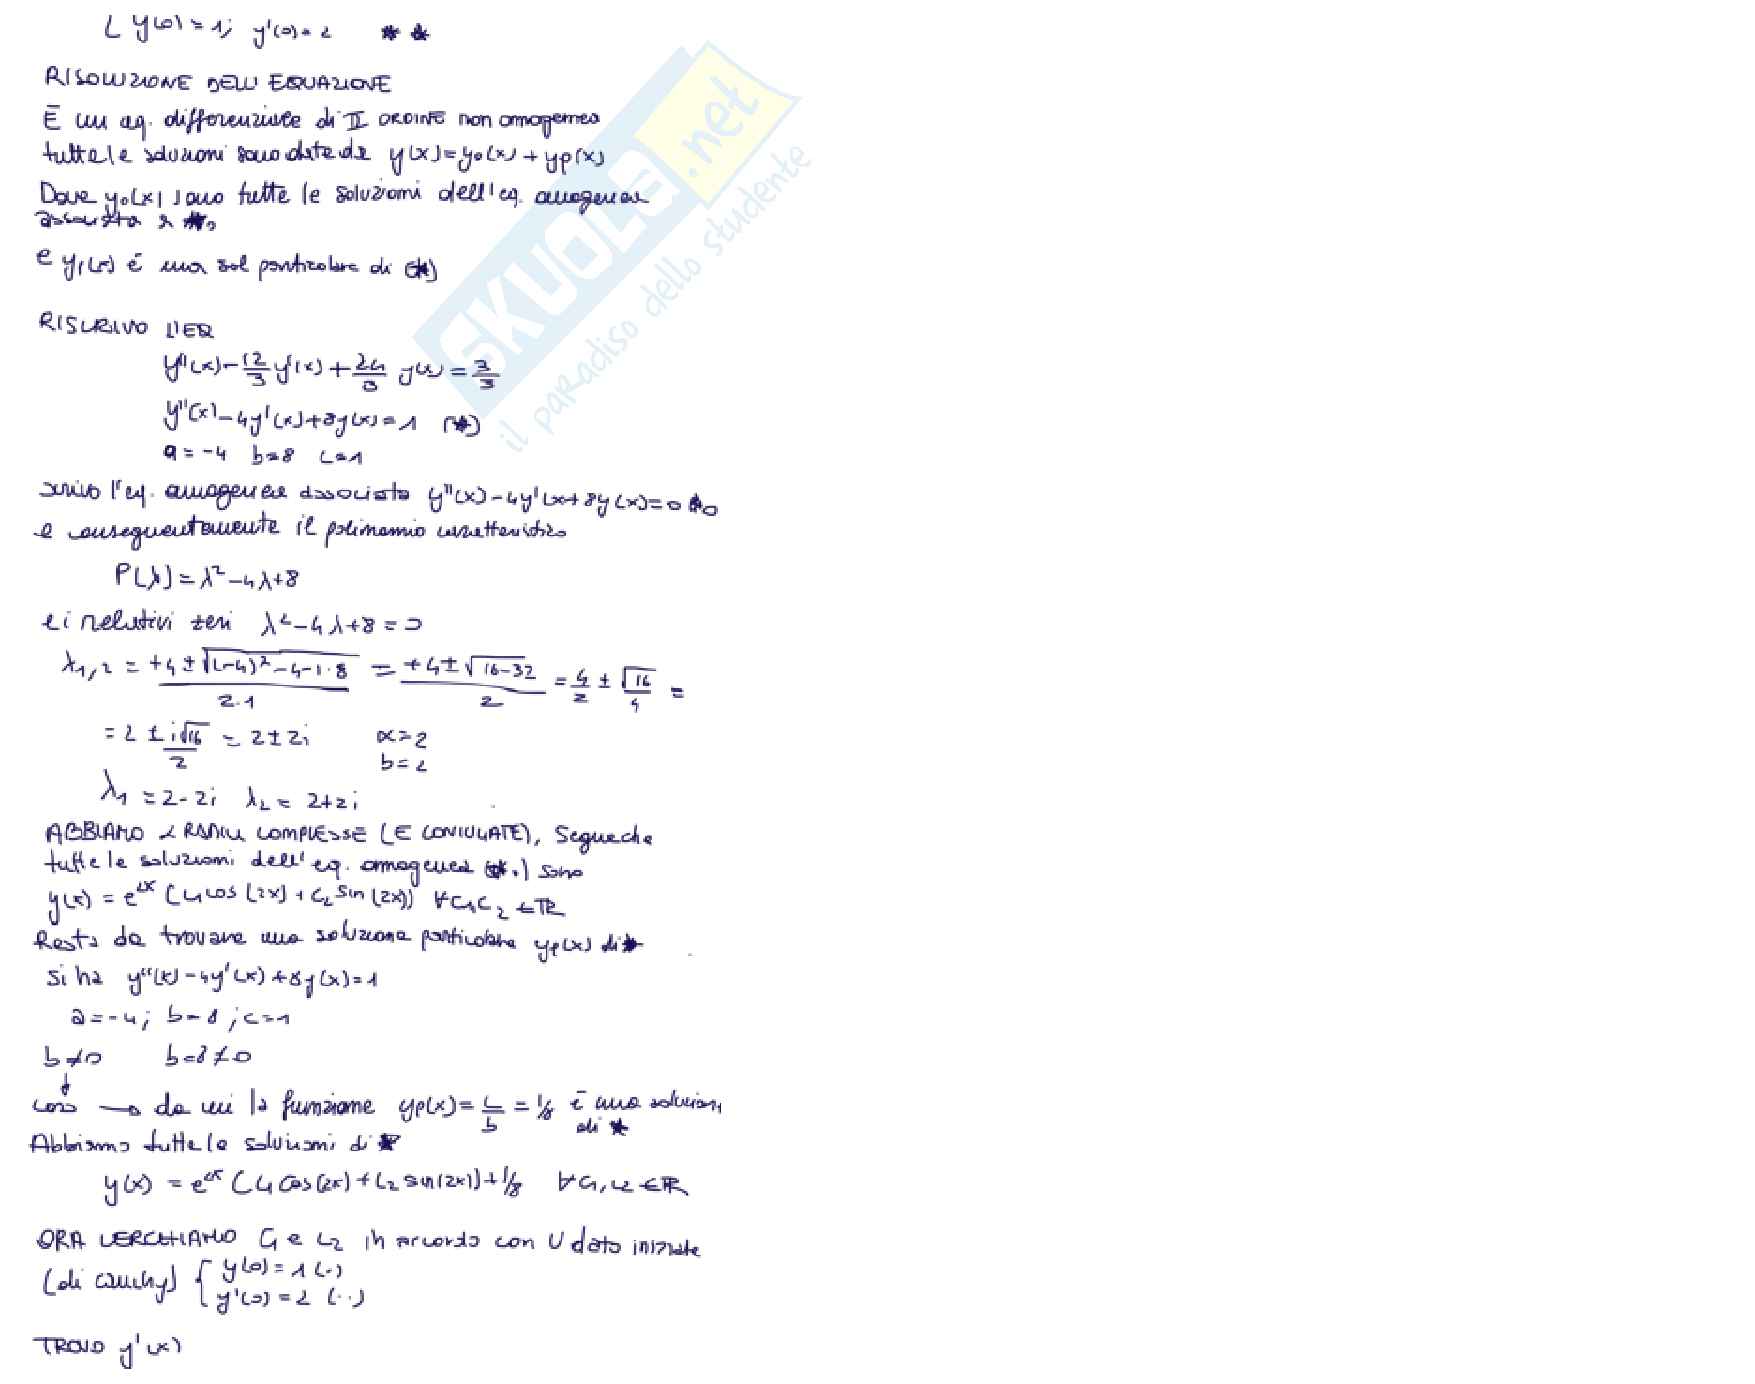 { y(0) = 1; y'(0) = 2 **
RISOLUZIONE DELL'EQUAZIONE
È un eq. differenziale di II ORDINE non omogenea
tutte le soluzioni sono date da y(x) = y₀(x) + yp(x)
Dove y₀(x) sono tutte le soluzioni dell'eq. omogenea
associata a *₀
e yp(x) è una sol particolare di (*)
RISCRIVO L'EQ
y''(x) - 12/3 y'(x) + 24/3 y(x) = 3/3
y''(x) - 4y'(x) + 8y(x) = 1 (*)
a = -4 b = 8 c = 1
scrivo l'eq. omogenea associata y''(x) - 4y'(x + 8y(x) = 0 *₀
e conseguentemente il polinomio caratteristico
P(λ) = λ² - 4λ + 8
e i relativi zeri λ² - 4λ + 8 = 0
λ₁,₂ = +4 ± √(-4)² - 4 - 1·8 / 2·1 = +4 ± √16-32 / 2 = 4/2 ± √16/4 =
= 2 ± i√16/2 = 2 ± 2i α = 2
b = 2
λ₁ = 2 - 2i λ₂ = 2 + 2i
ABBIAMO 2 RADICI COMPLESSE (E CONIUGATE), Segue che
tutte le soluzioni dell'eq. omogenea (*₀) sono
y(x) = e²ˣ (c₁cos(2x) + c₂ sin(2x)) ∀c₁c₂ ∈ R
Resta da trovare una soluzione particolare yp(x) di *
si ha y''(x) - 4y'(x) + 8y(x) = 1
a = -4; b = 8; c = 1
b ≠ 0 b = 8 ≠ 0
↓
caso → da cui la funzione yp(x) = c/b = 1/8 è una soluzion
di *
Abbiamo tutte le soluzioni di *
y(x) = e²ˣ (c₁cos(2x) + c₂ sin(2x)) + 1/8 ∀c₁, c₂ ∈ R
ORA CERCHIAMO C₁ e C₂ in accordo con il dato iniziale
(di Cauchy) { y(0) = 1 (·)
y'(0) = 2 (··)
TROVO y'(x)
SKUOLA.net
il paradiso dello studente